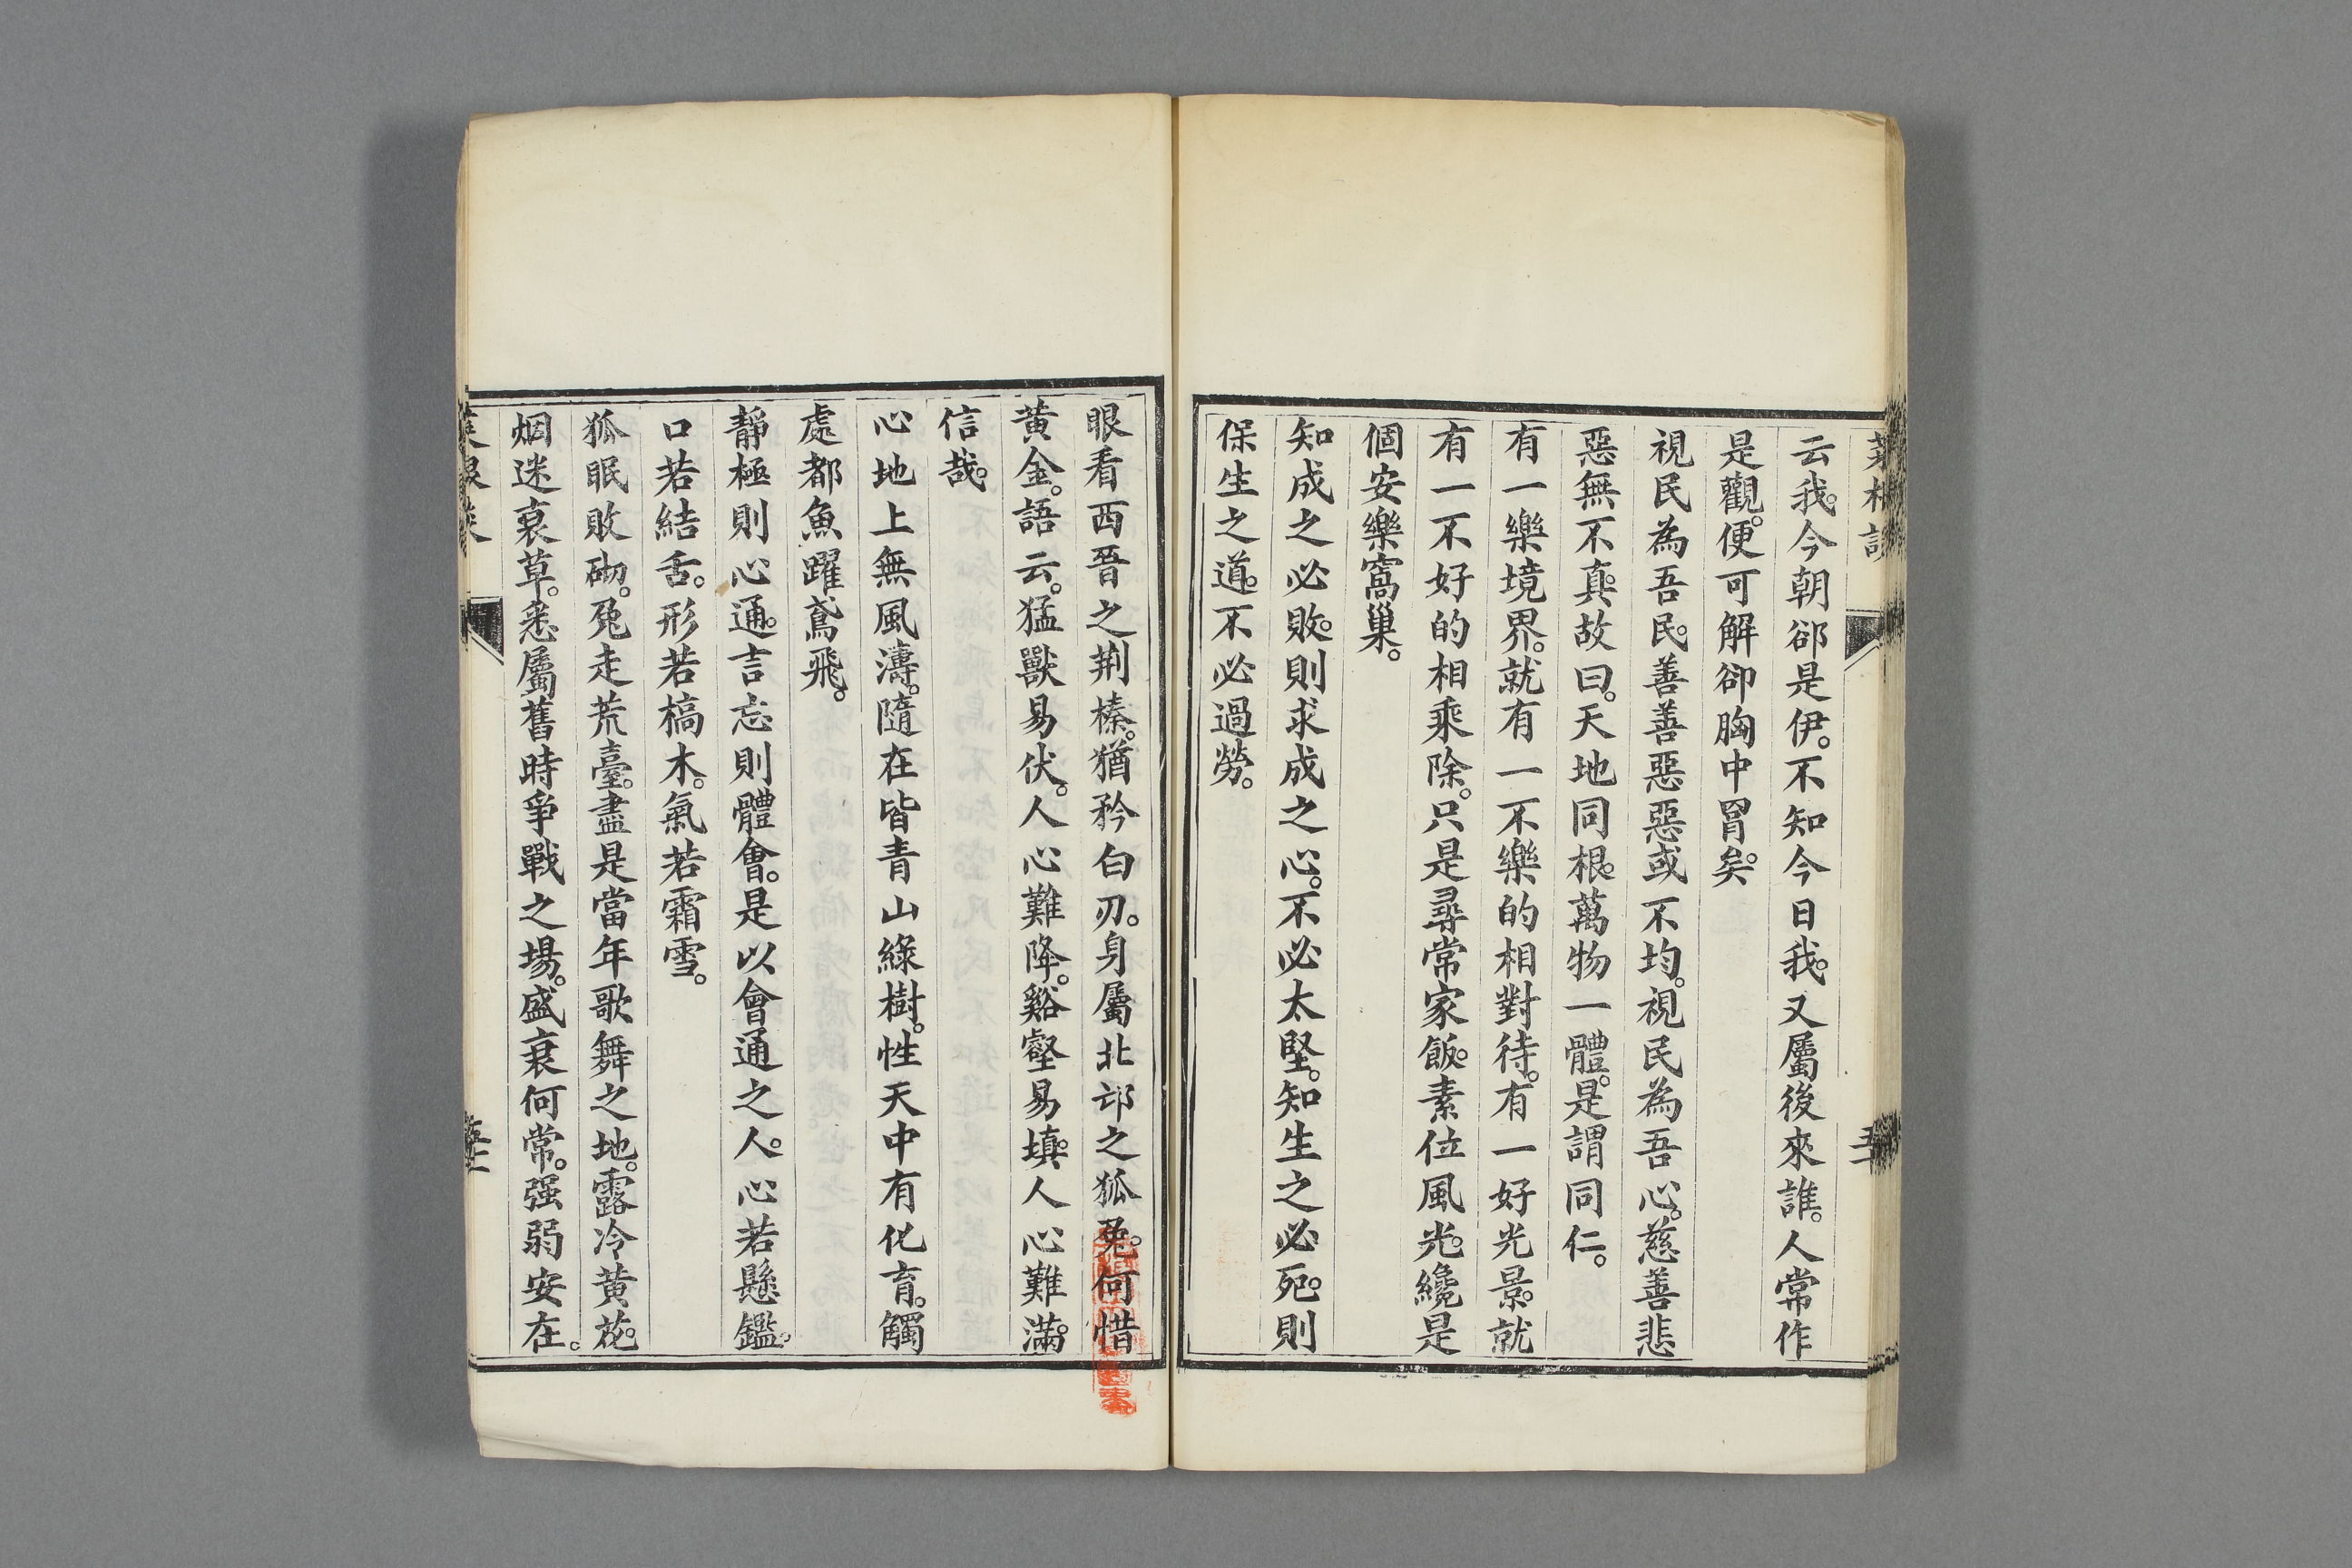 云我。今朝卻是伊。不知今日我。又屬後來誰。人常作
是觀。便可解卻胸中罥矣。
視民為吾民。善善惡惡或不均。視民為吾心。慈善悲
惡無不真。故曰。天地同根。萬物一體。是謂同仁。
有一樂境界。就有一不樂的相對待。有一好光景。就
有一不好的相乘除。只是尋常家飯。素位風光。纔是
個安樂窩巢。
知成之必敗。則求成之心。不必太堅。知生之必死。則
保生之道。不必過勞。
眼看西晉之荆榛。猶矜白刃。身屬北邙之狐兔。何惜
黄金。語云。猛獸易伏。人心難降。谿壑易填。人心難滿。
信哉。
心地上無風濤。隨在皆青山綠樹。性天中有化育。觸
處都魚躍鳶飛。
靜極則心通。言忘則體會。是以會通之人。心若懸鑑。
口若結舌。形若槁木。氣若霜雪。
狐眠敗砌。兔走荒臺。盡是當年歌舞之地。露冷黄花。
烟迷衰草。悉屬舊時爭戰之場。盛衰何常。强弱安在。